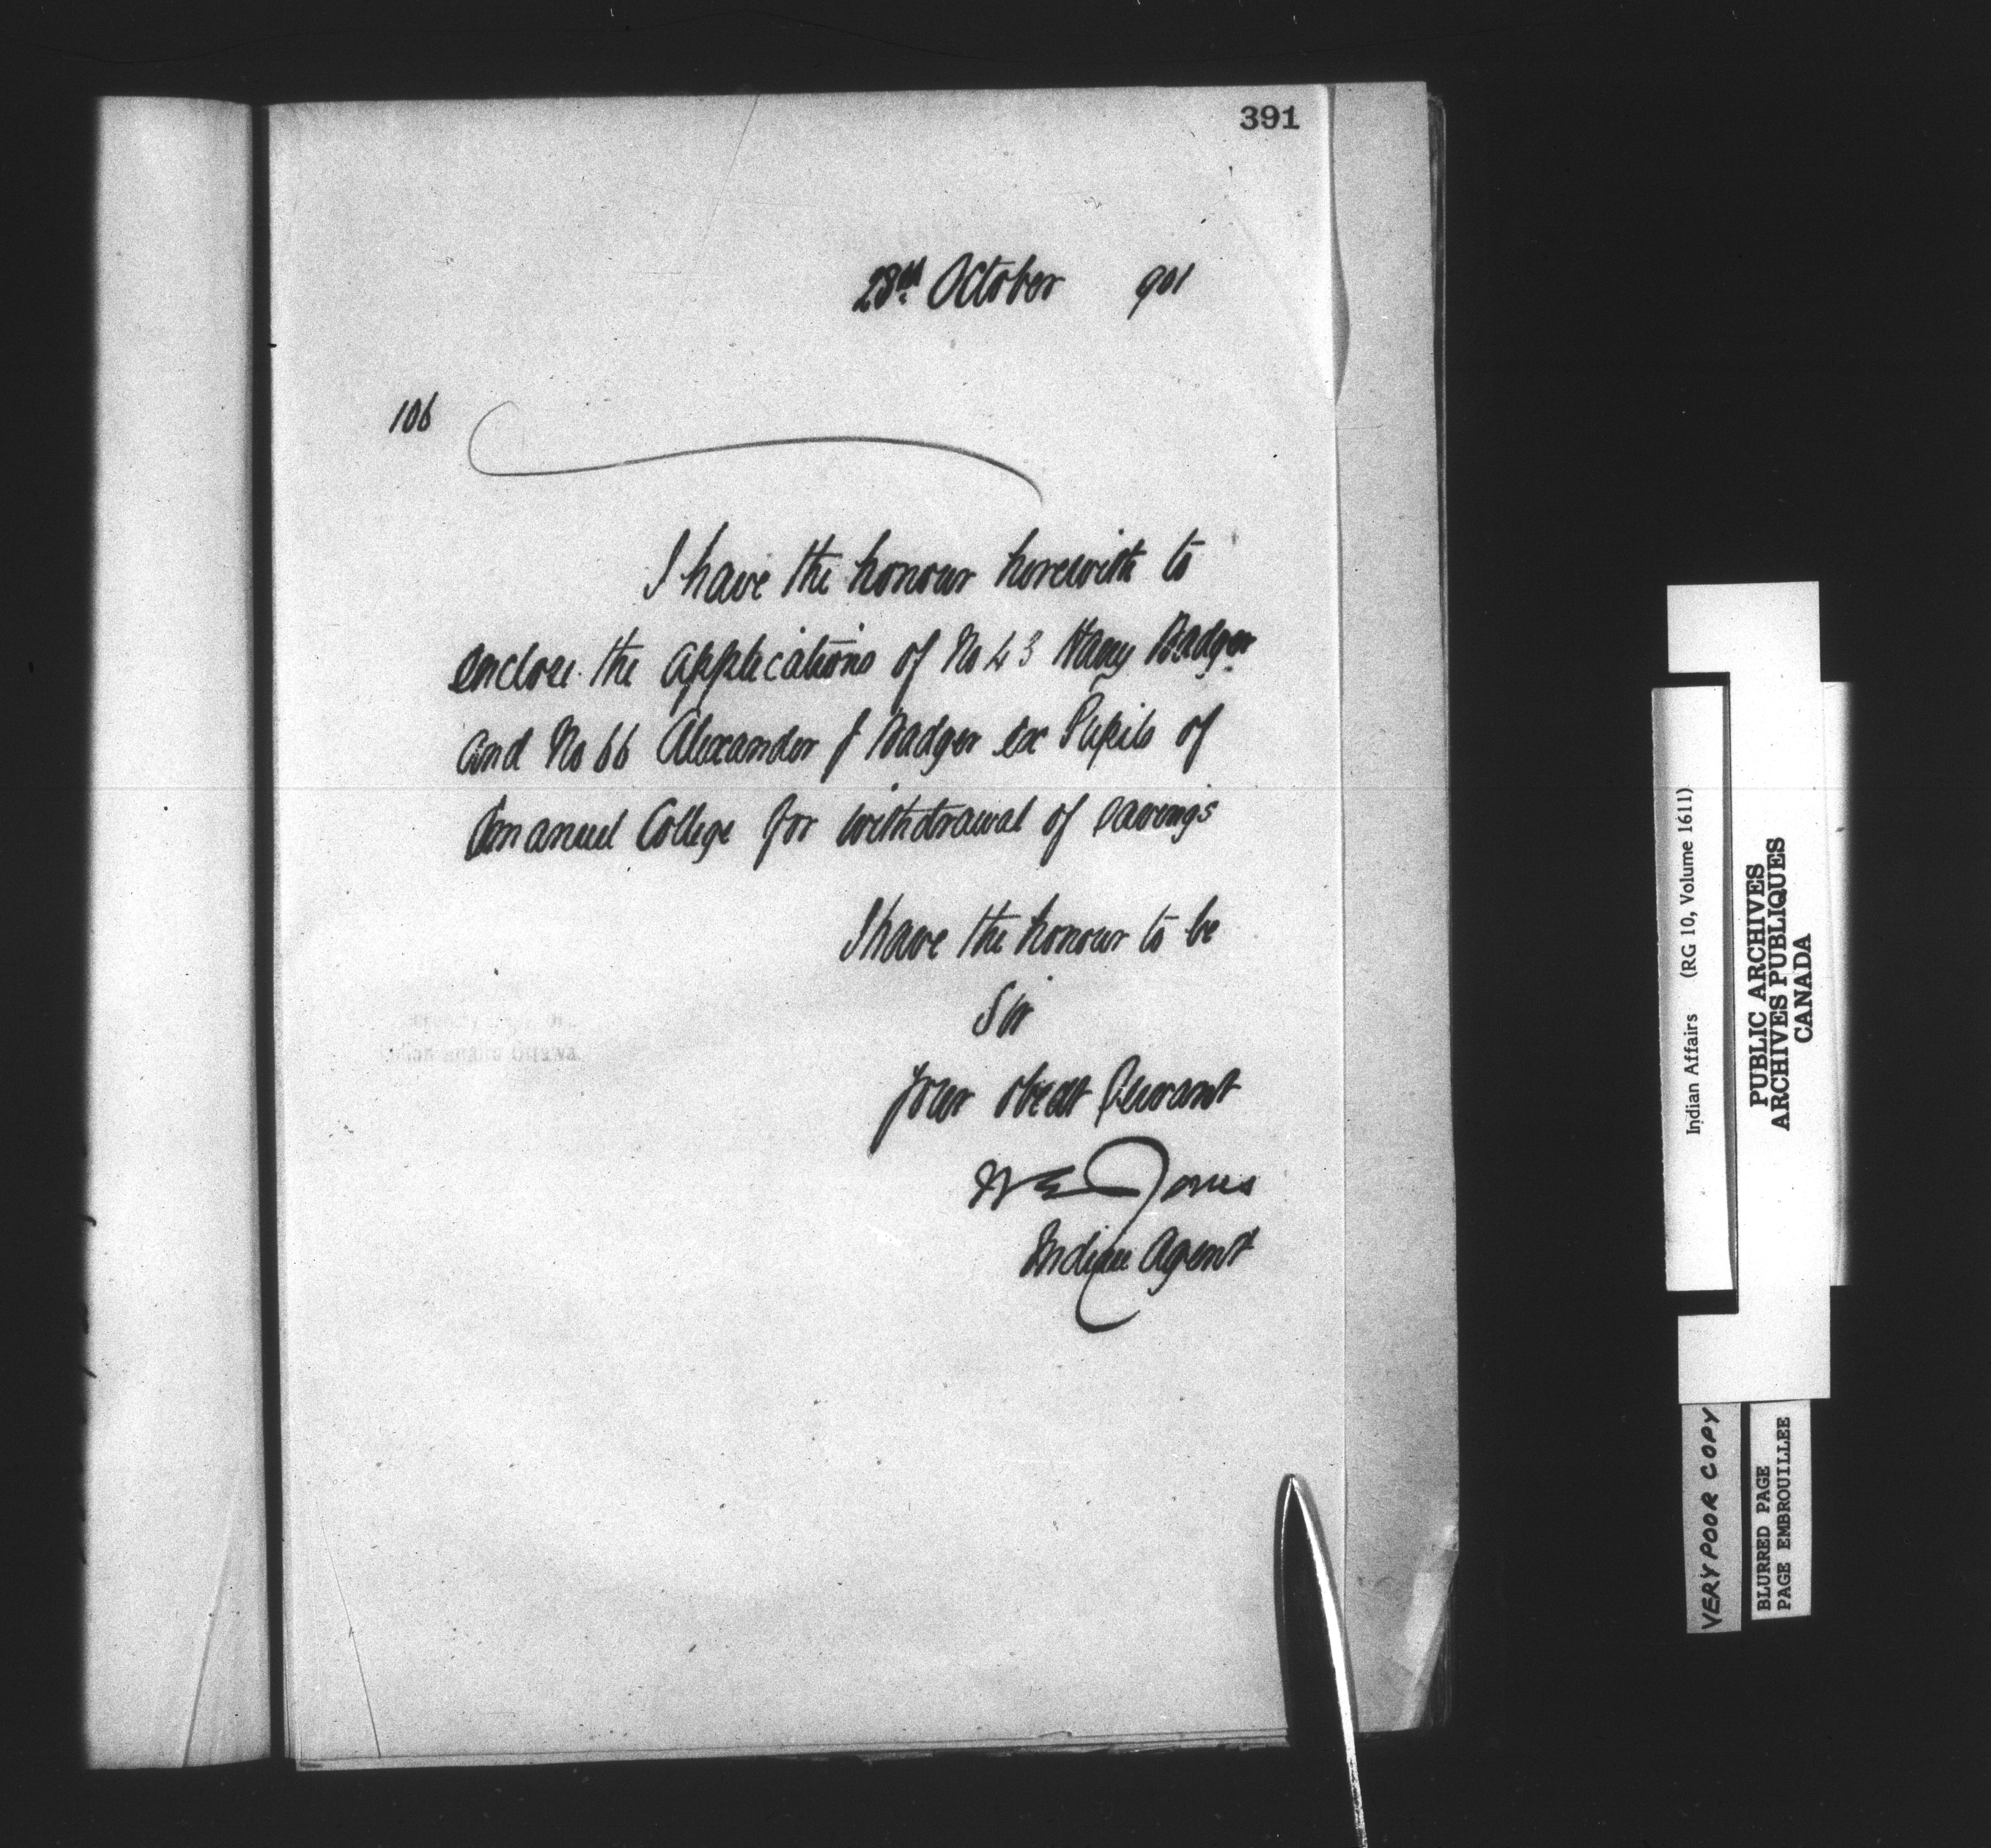 391
28th October 901
106
I have the honour herewith to
enclose the applications of No 43 Harry Badger
and No 66 Alexander J Badger ex Pupils of
Emanuel College for withdrawal of savings
I have the honour to be
Sir
Your obedt Servant
W E Jones
Indian Agent
Indian Affairs (RG 10, Volume 1611)
PUBLIC ARCHIVES
ARCHIVES PUBLIQUES
CANADA
VERY POOR COPY
BLURRED PAGE
PAGE EMBROUILLEE